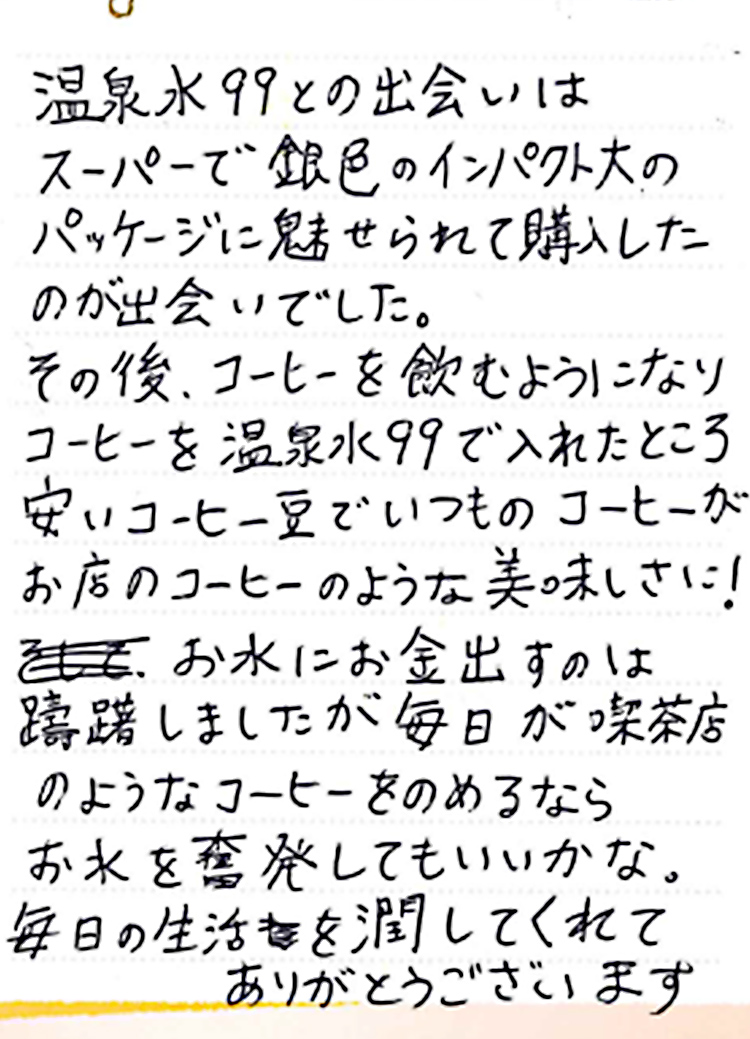 温泉水99との出会いは
スーパーで銀色のインパクト大の
パッケージに魅せられて購入した
のが出会いでした。
その後、コーヒーを飲むようになり
コーヒーを温泉水99で入れたところ
安いコーヒー豆でいつものコーヒーが
お店のコーヒーのような美味しさに!
お水にお金出すのは
躊躇しましたが毎日が喫茶店
のようなコーヒーをのめるなら
お水を奮発してもいいかな。
毎日の生活を潤してくれて
ありがとうございます